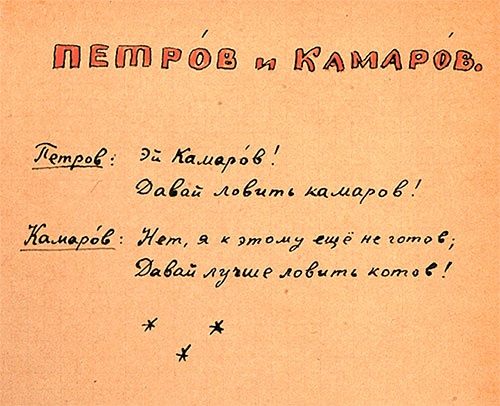 ПЕТРО́В и КАМАРО́В.
Петров: Эй Камаро́в!
Давай ловить камаров!
Камаро́в: Нет, я к этому ещё не готов;
Давай лучше ловить котов!
* *
*